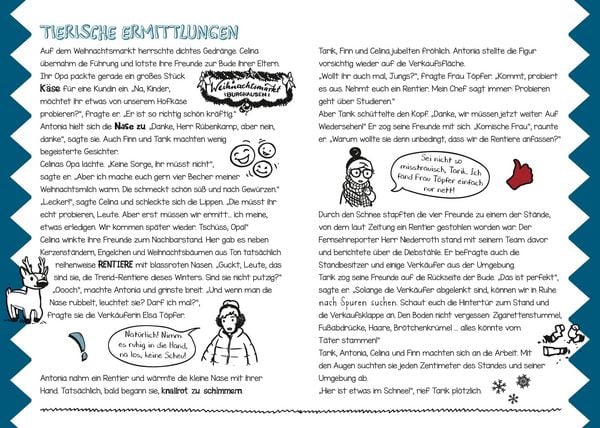 TIERISCHE ERMITTLUNGEN
Auf dem Weihnachtsmarkt herrschte dichtes Gedränge. Celina
übernahm die Führung und lotste ihre Freunde zur Bude ihrer Eltern.
Ihr Opa packte gerade ein großes Stück
Käse für eine Kundin ein. „Na, Kinder,
möchtet ihr etwas von unserem Hofkäse
probieren?", fragte er. „Er ist so richtig schön kräftig."
Weihnachtsmarkt
BURGHAUSEN!
Antonia hielt sich die Nase zu. „Danke, Herr Rübenkamp, aber nein,
danke", sagte sie. Auch Finn und Tarik machten wenig
begeisterte Gesichter.
Celinas Opa lachte. „Keine Sorge, ihr müsst nicht",
sagte er. „Aber ich mache euch gern vier Becher meiner
Weihnachtsmilch warm. Die schmeckt schön süß und nach Gewürzen."
„Lecker!", sagte Celina und schleckte sich die Lippen. „Die müsst ihr
echt probieren, Leute. Aber erst müssen wir ermitt... ich meine,
etwas erledigen. Wir kommen später wieder. Tschüss, Opa!"
Celina winkte ihre Freunde zum Nachbarstand. Hier gab es neben
Kerzenständern, Engelchen und Weihnachtsbäumen aus Ton tatsächlich
reihenweise RENTIERE mit blassroten Nasen. „Guckt, Leute, das
sind sie, die Trend-Rentiere dieses Winters. Sind sie nicht putzig?"
„Ooooh", machte Antonia und grinste breit. „Und wenn man die
Nase rubbelt, leuchtet sie? Darf ich mal?",
fragte sie die Verkäuferin Elsa Töpfer.
Natürlich! Nimm
es ruhig in die Hand,
na los, keine Scheu!
Antonia nahm ein Rentier und wärmte die kleine Nase mit ihrer
Hand. Tatsächlich, bald begann sie, knallrot zu schimmern.
Tarik, Finn und Celina jubelten fröhlich. Antonia stellte die Figur
vorsichtig wieder auf die Verkaufsfläche.
„Wollt ihr auch mal, Jungs?", fragte Frau Töpfer. „Kommt, probiert
es aus. Nehmt euch ein Rentier. Mein Chef sagt immer: Probieren
geht über Studieren."
Aber Tarik schüttelte den Kopf. „Danke, wir müssen jetzt weiter. Auf
Wiedersehen!" Er zog seine Freunde mit sich. „Komische Frau", raunte
er. „Warum wollte sie denn unbedingt, dass wir die Rentiere anfassen?"
Sei nicht so
misstrauisch, Tarik. Ich
fand Frau Töpfer einfach
nur nett!
Durch den Schnee stapften die vier Freunde zu einem der Stände,
von dem laut Zeitung ein Rentier gestohlen worden war. Der
Fernsehreporter Herr Niederroth stand mit seinem Team davor
und berichtete über die Diebstähle. Er befragte auch die
Standbesitzer und einige Verkäufer aus der Umgebung.
Tarik zog seine Freunde auf die Rückseite der Bude. „Das ist perfekt",
sagte er. „Solange die Verkäufer abgelenkt sind, können wir in Ruhe
nach Spuren suchen. Schaut euch die Hintertür zum Stand und
die Verkaufsklappe an. Den Boden nicht vergessen: Zigarettenstummel,
Fußabdrücke, Haare, Brötchenkrümel ... alles könnte vom
Täter stammen!"
Tarik, Antonia, Celina und Finn machten sich an die Arbeit. Mit
den Augen suchten sie jeden Zentimeter des Standes und seiner
Umgebung ab.
„Hier ist etwas im Schnee!", rief Tarik plötzlich.